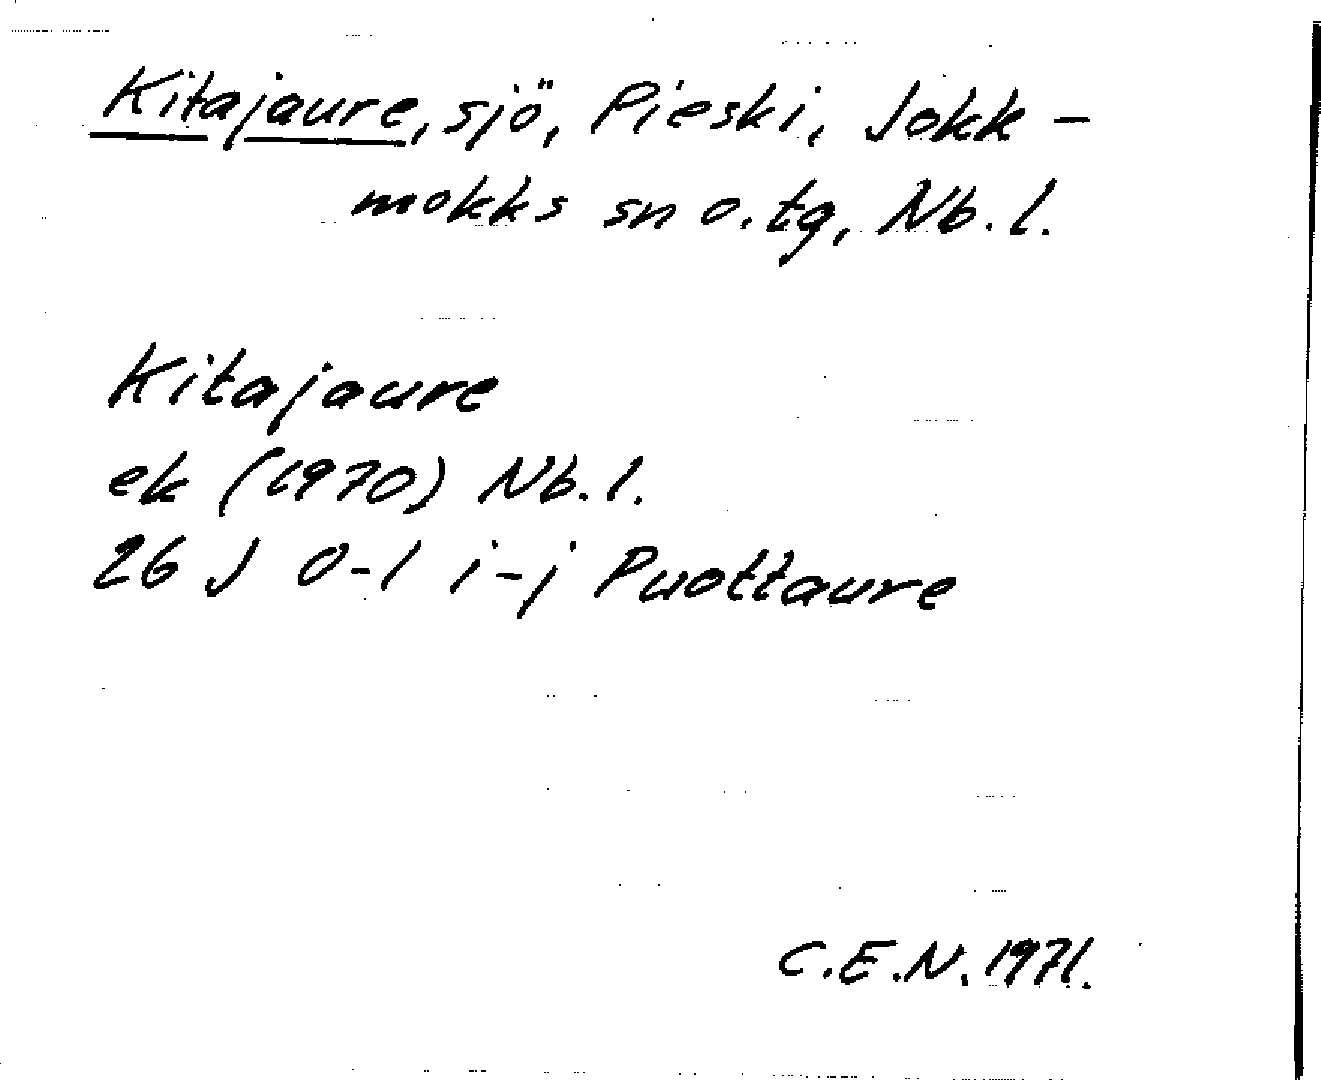 Kitajaure, sjö, Pieski, Jokk-
mokks sn o. tg, Nb. l.
Kitajaure
ek (1970) Nb. l.
26 J 0-1 i-j Puottaure
C.E.N. 1971.